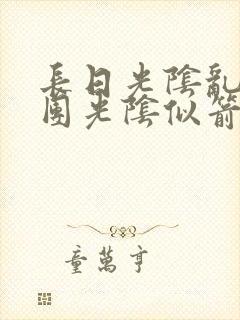 長日光陰亂
團光陰似箭
童萬亨